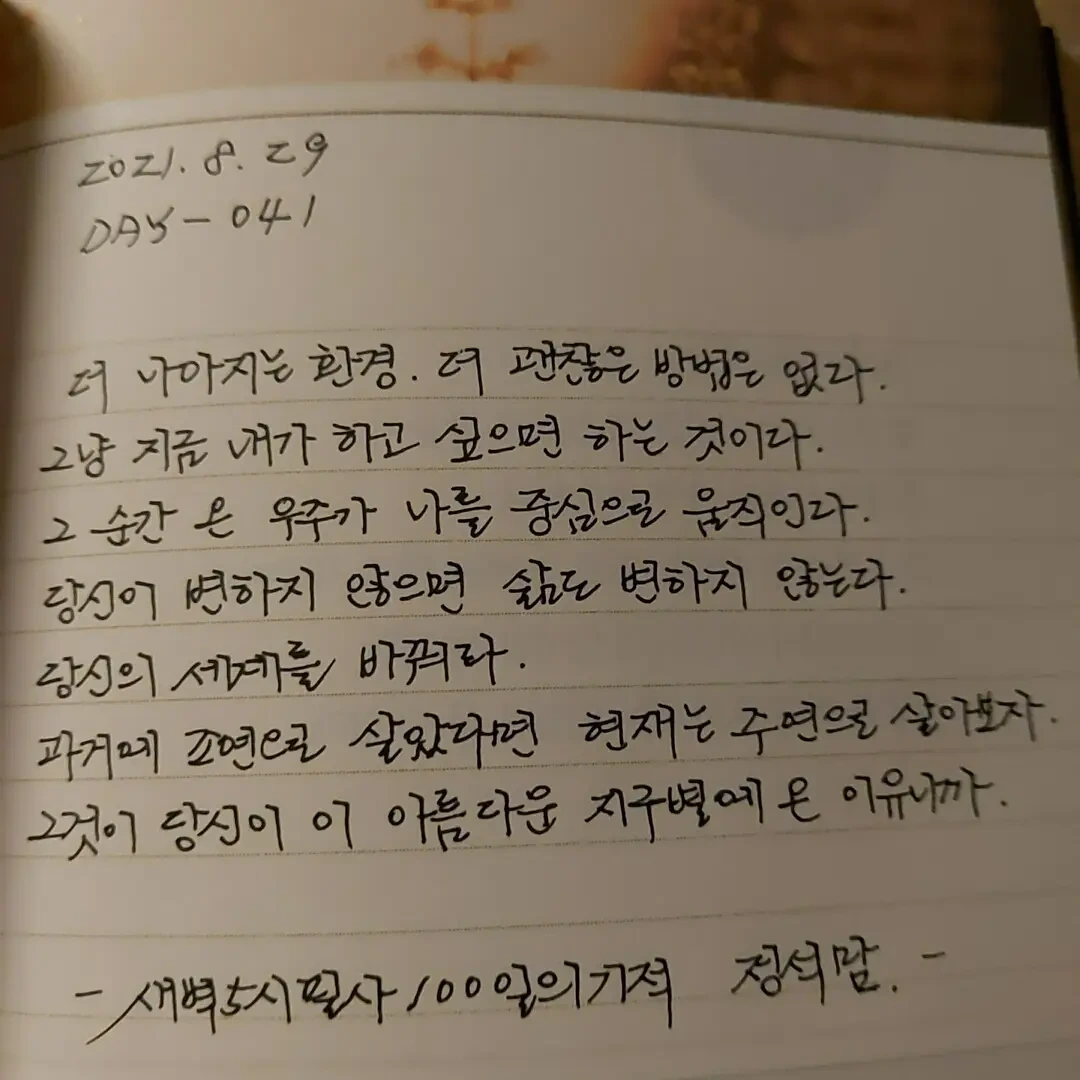 2021. 8. 29
DAY - 041
더 나아지는 환경. 더 괜찮은 방법은 없다.
그냥 지금 내가 하고 싶으면 하는 것이다.
그 순간 온 우주가 나를 중심으로 움직인다.
당신이 변하지 않으면 삶도 변하지 않는다.
당신의 세계를 바꿔라.
과거에 조연으로 살았다면 현재는 주연으로 살아보자.
그것이 당신이 이 아름다운 지구별에 온 이유니까.
- 새벽5시필사100일의기적 정석맘. -